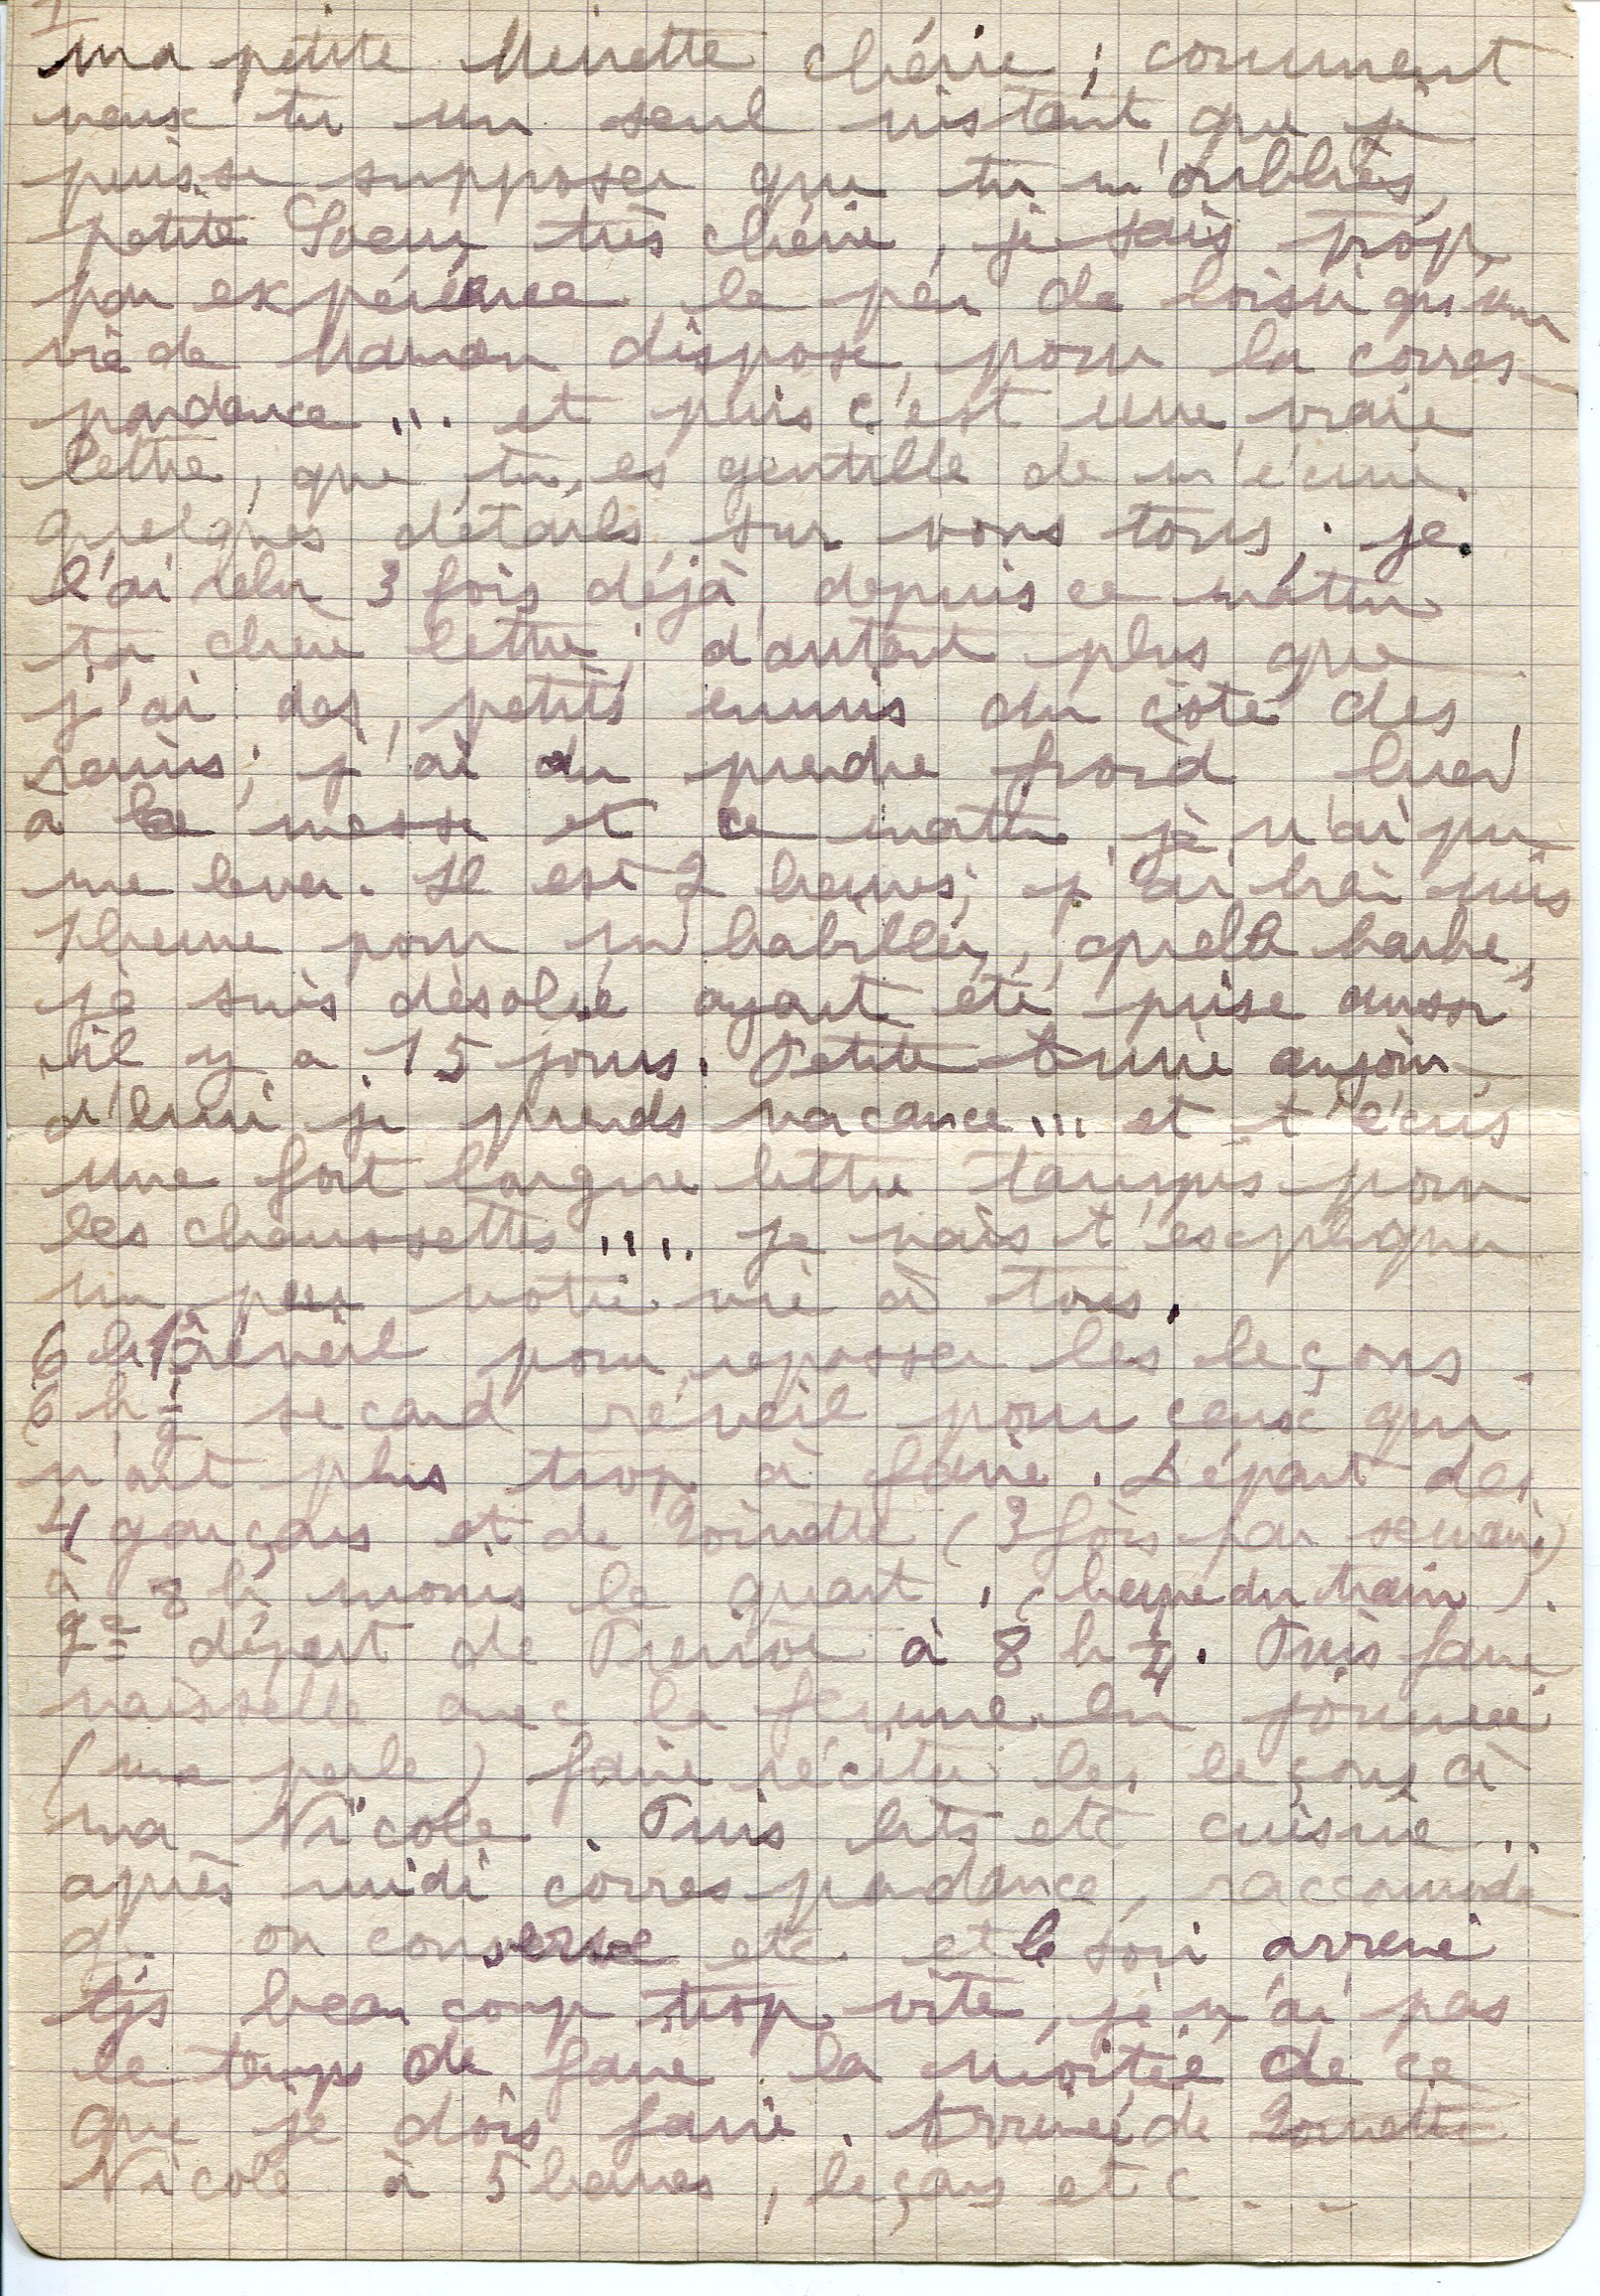 1
ma petite Minette chérie ; comment
veux tu un seul instant que je
puisse supposer que tu m'oublies,
petite Soeur très chérie, je sais trop,
par expérience le peu de loisir qu'une
vie de Maman dispose, pour la corres-
pondance ... et puis c'est une vraie
lettre, que tu es gentille de m'écrire.
quelques détails sur vous tous, ; je
l'ai relu 3 fois déjà, depuis ce matin
ta chère lettre ; d'autant plus que
j'ai des petits ennuis du côté des
reins ; j'ai du prendre froid hier
à la messe et ce matin je n'ai pu
me lever. Il est 2 heures ; j'ai bien mis
1 heure pour m'habiller, quelle barbe,
je suis désolée ayant été prise aussi
il y a 15 jours. Petite Annie aujour-
d'hui je prends vacance ... et t'écris
une fort longue lettre tampis pour
les chaussettes .... je vais t'expliquer
un peu notre vie à tous.
6 h 1er réveil pour repasser les leçons.
6 h 1/2 second réveil pour ceux qui
n'ont plus trop à faire. Départ des
4 garçons et de Zoinette (3 fois par semaine)
à 8 h moins le quart, (heure du train).
2e départ de Pierrot à 8 h 1/4. Puis faire
vaisselle avec la femme en journée
(ma perle) faire réciter les leçons à
ma Nicole. Puis lits etc cuisine ..
après midi correspondance, raccommoda-
g. ou conserve etc. et le soir arrive
tjs beaucoup trop vite, je n'ai pas
le temps de faire la moitié de ce
que je dois faire. Arrivée de Zoinette
Nicole à 5 heures, leçons etc ...